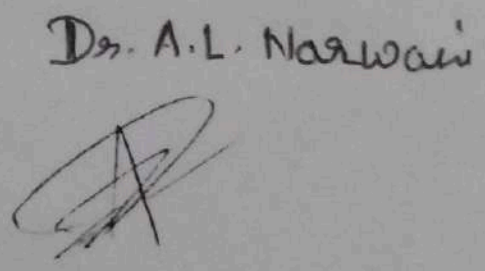 Dr. A.L. Narwani